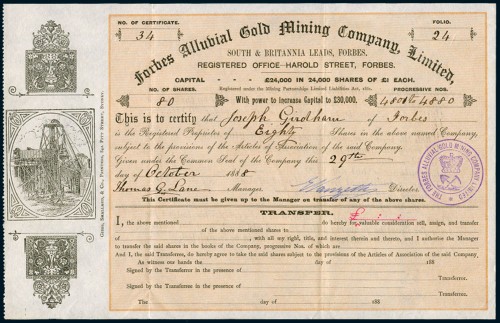 NO. OF CERTIFICATE.
34
FOLIO.
24
Forbes Alluvial Gold Mining Company, Limited,
SOUTH & BRITANNIA LEADS, FORBES.
REGISTERED OFFICE—HAROLD STREET, FORBES.
CAPITAL — £24,000 IN 24,000 SHARES OF £1 EACH.
NO. OF SHARES.
Registered under the Mining Partnerships Limited Liabilities Act, 1861.
PROGRESSIVE NOS.
80
With power to increase Capital to £30,000.
4801 to 4880
This is to certify that Joseph Girdham of Forbes
is the Registered Proprietor of Eighty Shares in the above named Company,
subject to the provisions of the Articles of Association of the said Company.
Given under the Common Seal of the Company this 29th
day of October 1888
Thomas G. Lane Manager. Director.
This Certificate must be given up to the Manager on transfer of any of the above shares.
THE FORBES ALLUVIAL GOLD MINING COMPANY LIMITED
TRANSFER.
I, the above mentioned do hereby for valuable consideration sell, assign, and transfer
of the above mentioned shares to
of , with all my right, title, and interest therein and thereto, and I authorise the Manager
to transfer the said shares in the books of the Company, progressive Nos. of which are
And I, the said Transferee, do hereby agree to take the said shares subject to the provisions of the Articles of Association of the said Company.
As witness our hands the day of 188
Signed by the Transferror in the presence of
Transferror.
Signed by the Transferee in the presence of
Transferee.
The day of 188